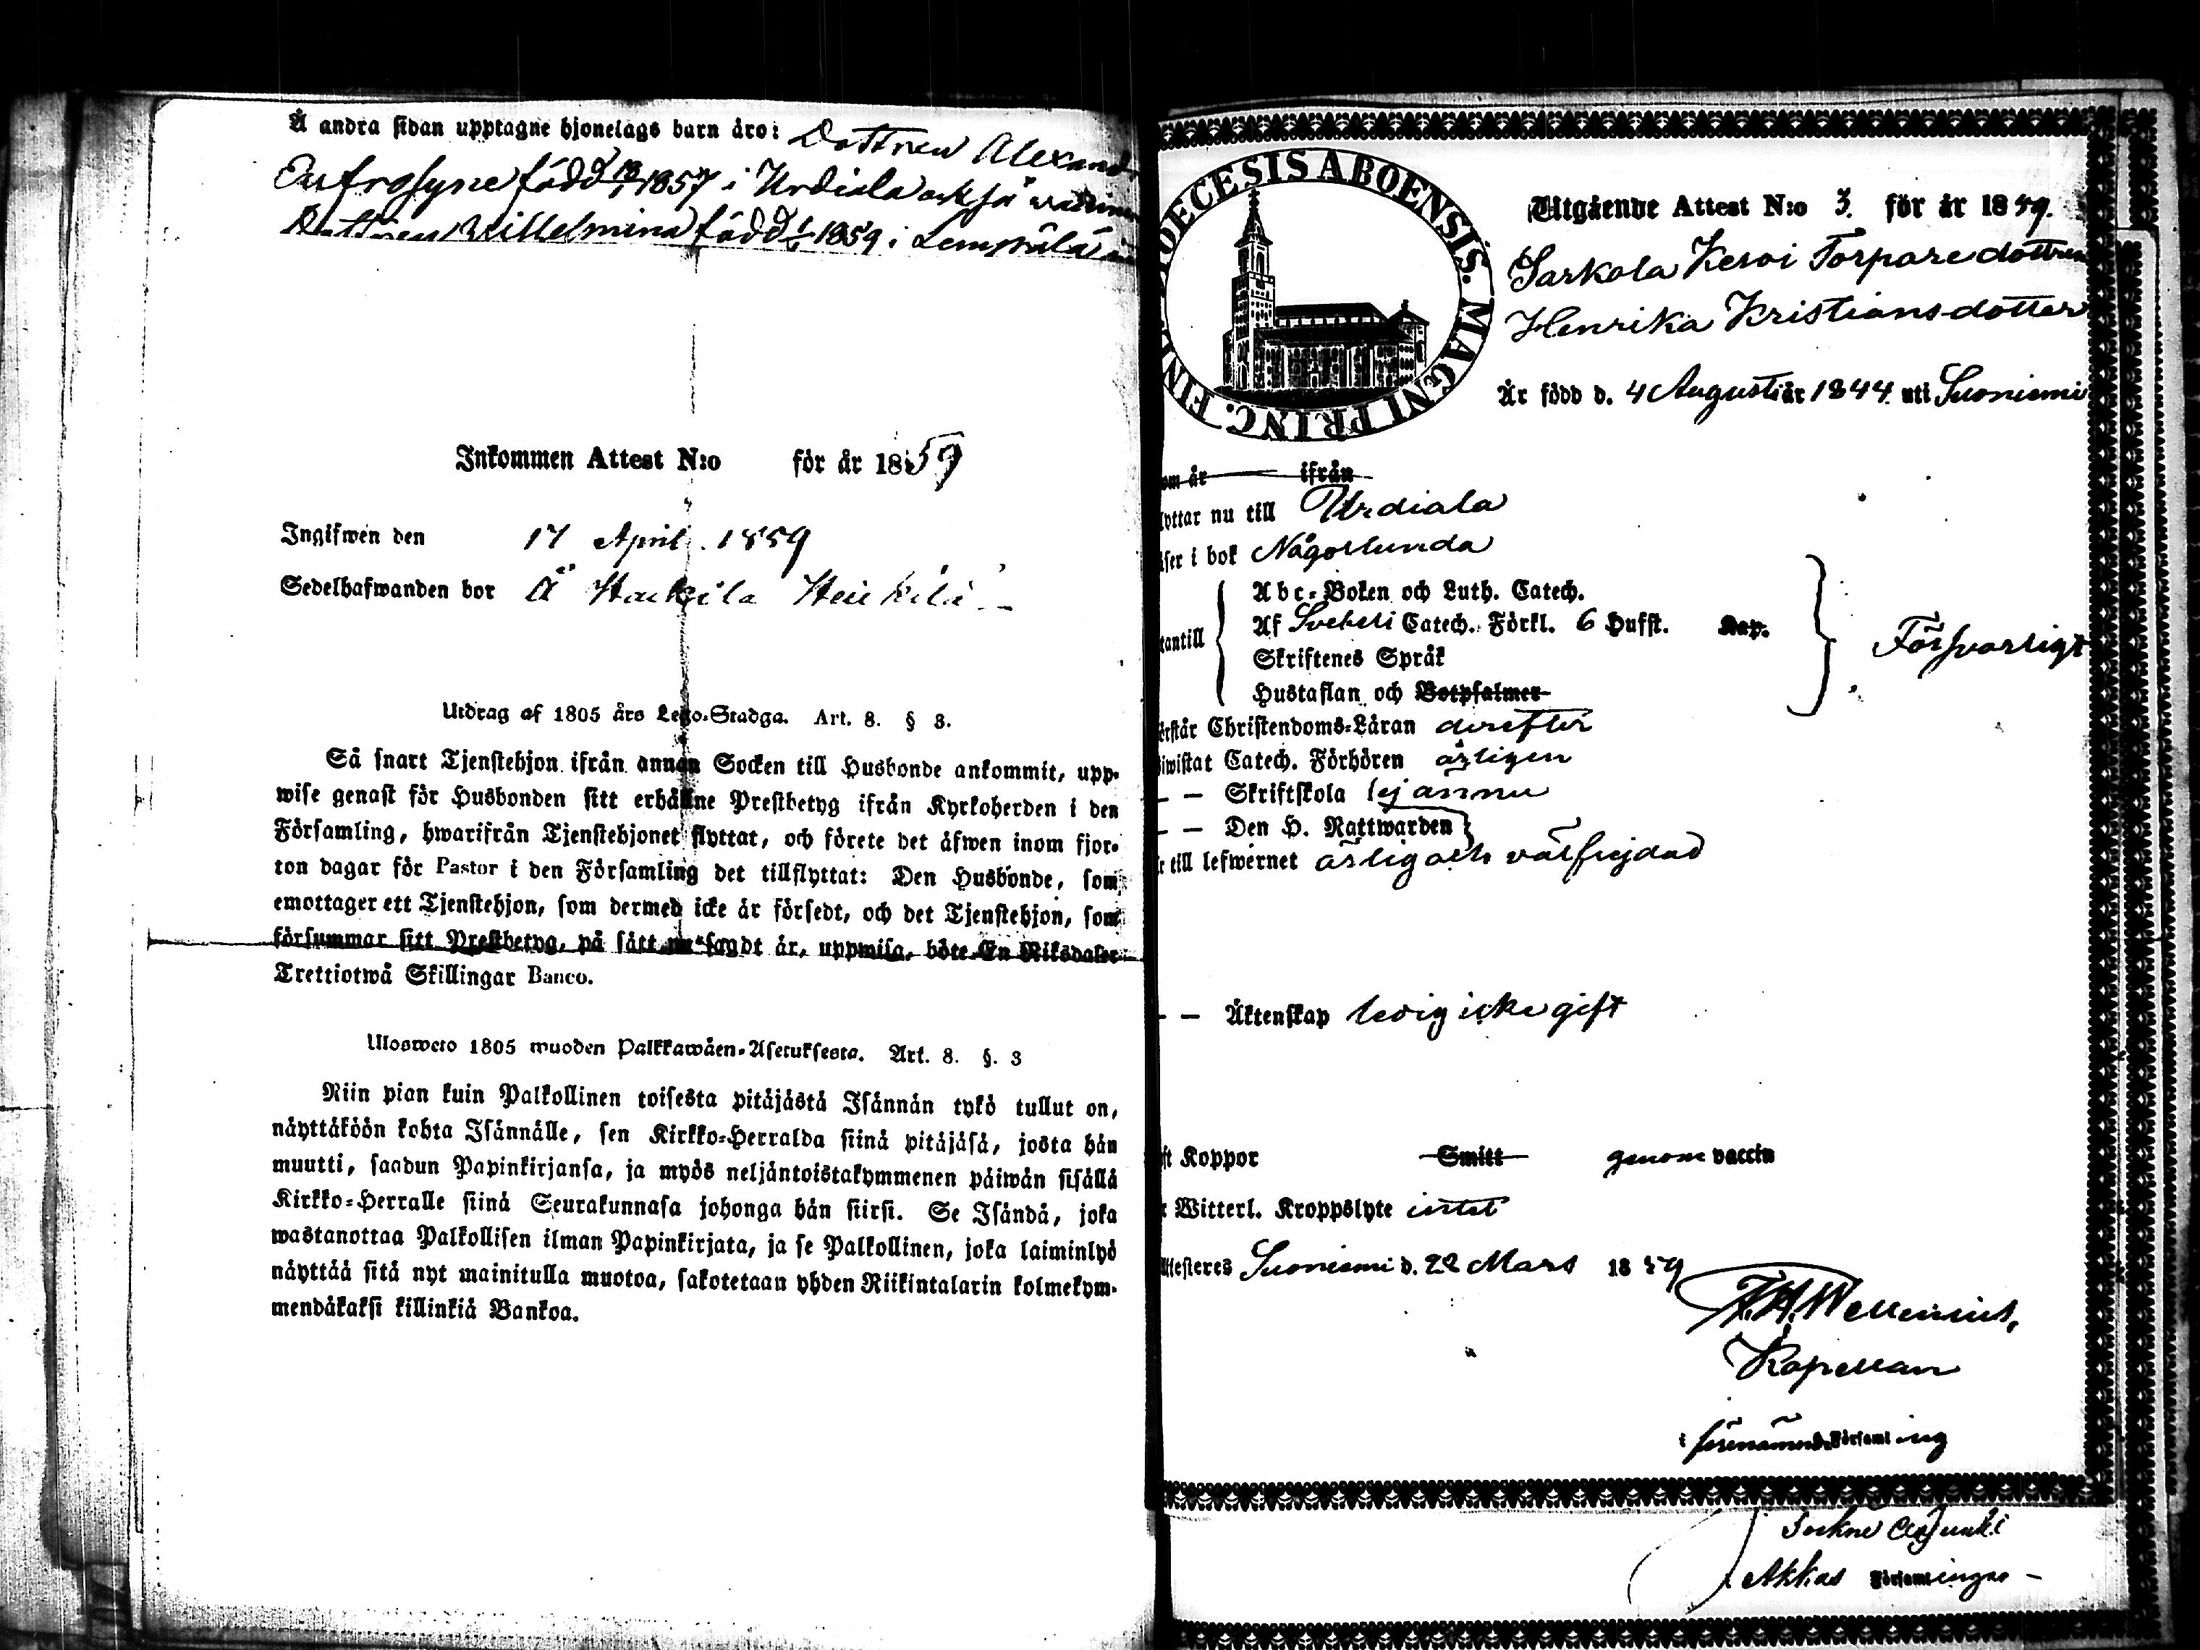 Å andra sidan upptagne hjonelags barn äro: Dottren Alexand
Eufrosyne född 1857 i Urdiala också
Dottren Willhelmina född 1859 i Lempälä
Inkommen Attest N:o för år 1859
Ingifwen den 17 April 1859
Sedelhafwanden bor Å Heikilä
Utdrag af 1805 års Lego-Stadga. Art. 8. § 3.
Så snart Tjenstehjon ifrån annan Socken till Husbonde ankommit, upp-
wise genast för Husbonden sitt erhållne Prestbetyg ifrån Kyrkoherden i den
Församling, hwarifrån Tjenstehjonet flyttat, och förete det äfwen inom fjor-
ton dagar för Pastor i den Församling det tillflyttat: Den Husbonde, som
emottager ett Tjenstehjon, som dermed icke är försedt, och det Tjenstehjon, som
försummar sitt Prestbetyg, på sätt nu sagdt är, uppwisa, böte En Riksdaler
Trettiotwå Skillingar Banco.
Ulosweto 1805 wuoden Palkkawäen-Asetuksesta. Art. 8. §. 3
Niin pian kuin Palkollinen toisesta pitäjästä Isännän tykö tullut on,
näyttäköön kohta Isännälle, sen Kirkko-Herralda siinä pitäjäsä, josta hän
muutti, saadun Papinkirjansa, ja myös neljäntoistakymmenen päiwän sisällä
Kirkko-Herralle siinä Seurakunnasa johonga hän siirsi. Se Isändä, joka
wastanottaa Palkollisen ilman Papinkirjata, ja se Palkollinen, joka laiminlyö
näyttää sitä nyt mainitulla muotoa, sakotetaan yhden Riikintalarin kolmekym-
mendäkaksi killinkiä Bankoa.
DIOECESIS ABOENSIS. MAGNI PRINC. FINL
Utgående Attest N:o 3. för år 1859.
Sarkola Kesoi Torparedottren
Henrika Kristiansdotter
Är född d. 4 Augusti år 1844 uti Suoniemi
om år ifrån
lyttar nu till Urdiala
äser i bok Någorlunda
tantill
Abc-Boken och Luth. Catech.
Af Svebeli Catech. Förkl. 6 Hufst. Kap.
Skriftenes Språk
Hustaflan och Botpsalmer
Försvarligt
örstår Christendoms-Läran derefter
iwistat Catech. Förhören årligen
— — Skriftskola ej ännu
— — Den H. Nattwarden
r till lefwernet ärlig och välfrejdad
— — Äktenskap ledig icke gift
ft Koppor Smitt genom vaccin
r Witterl. Kroppslyte intet
Attesteres Suoniemi d. 22 Mars 1859
Kapellan
i förenämnde Församling
Sockne Adjunkt
i Akkas Församlingar –